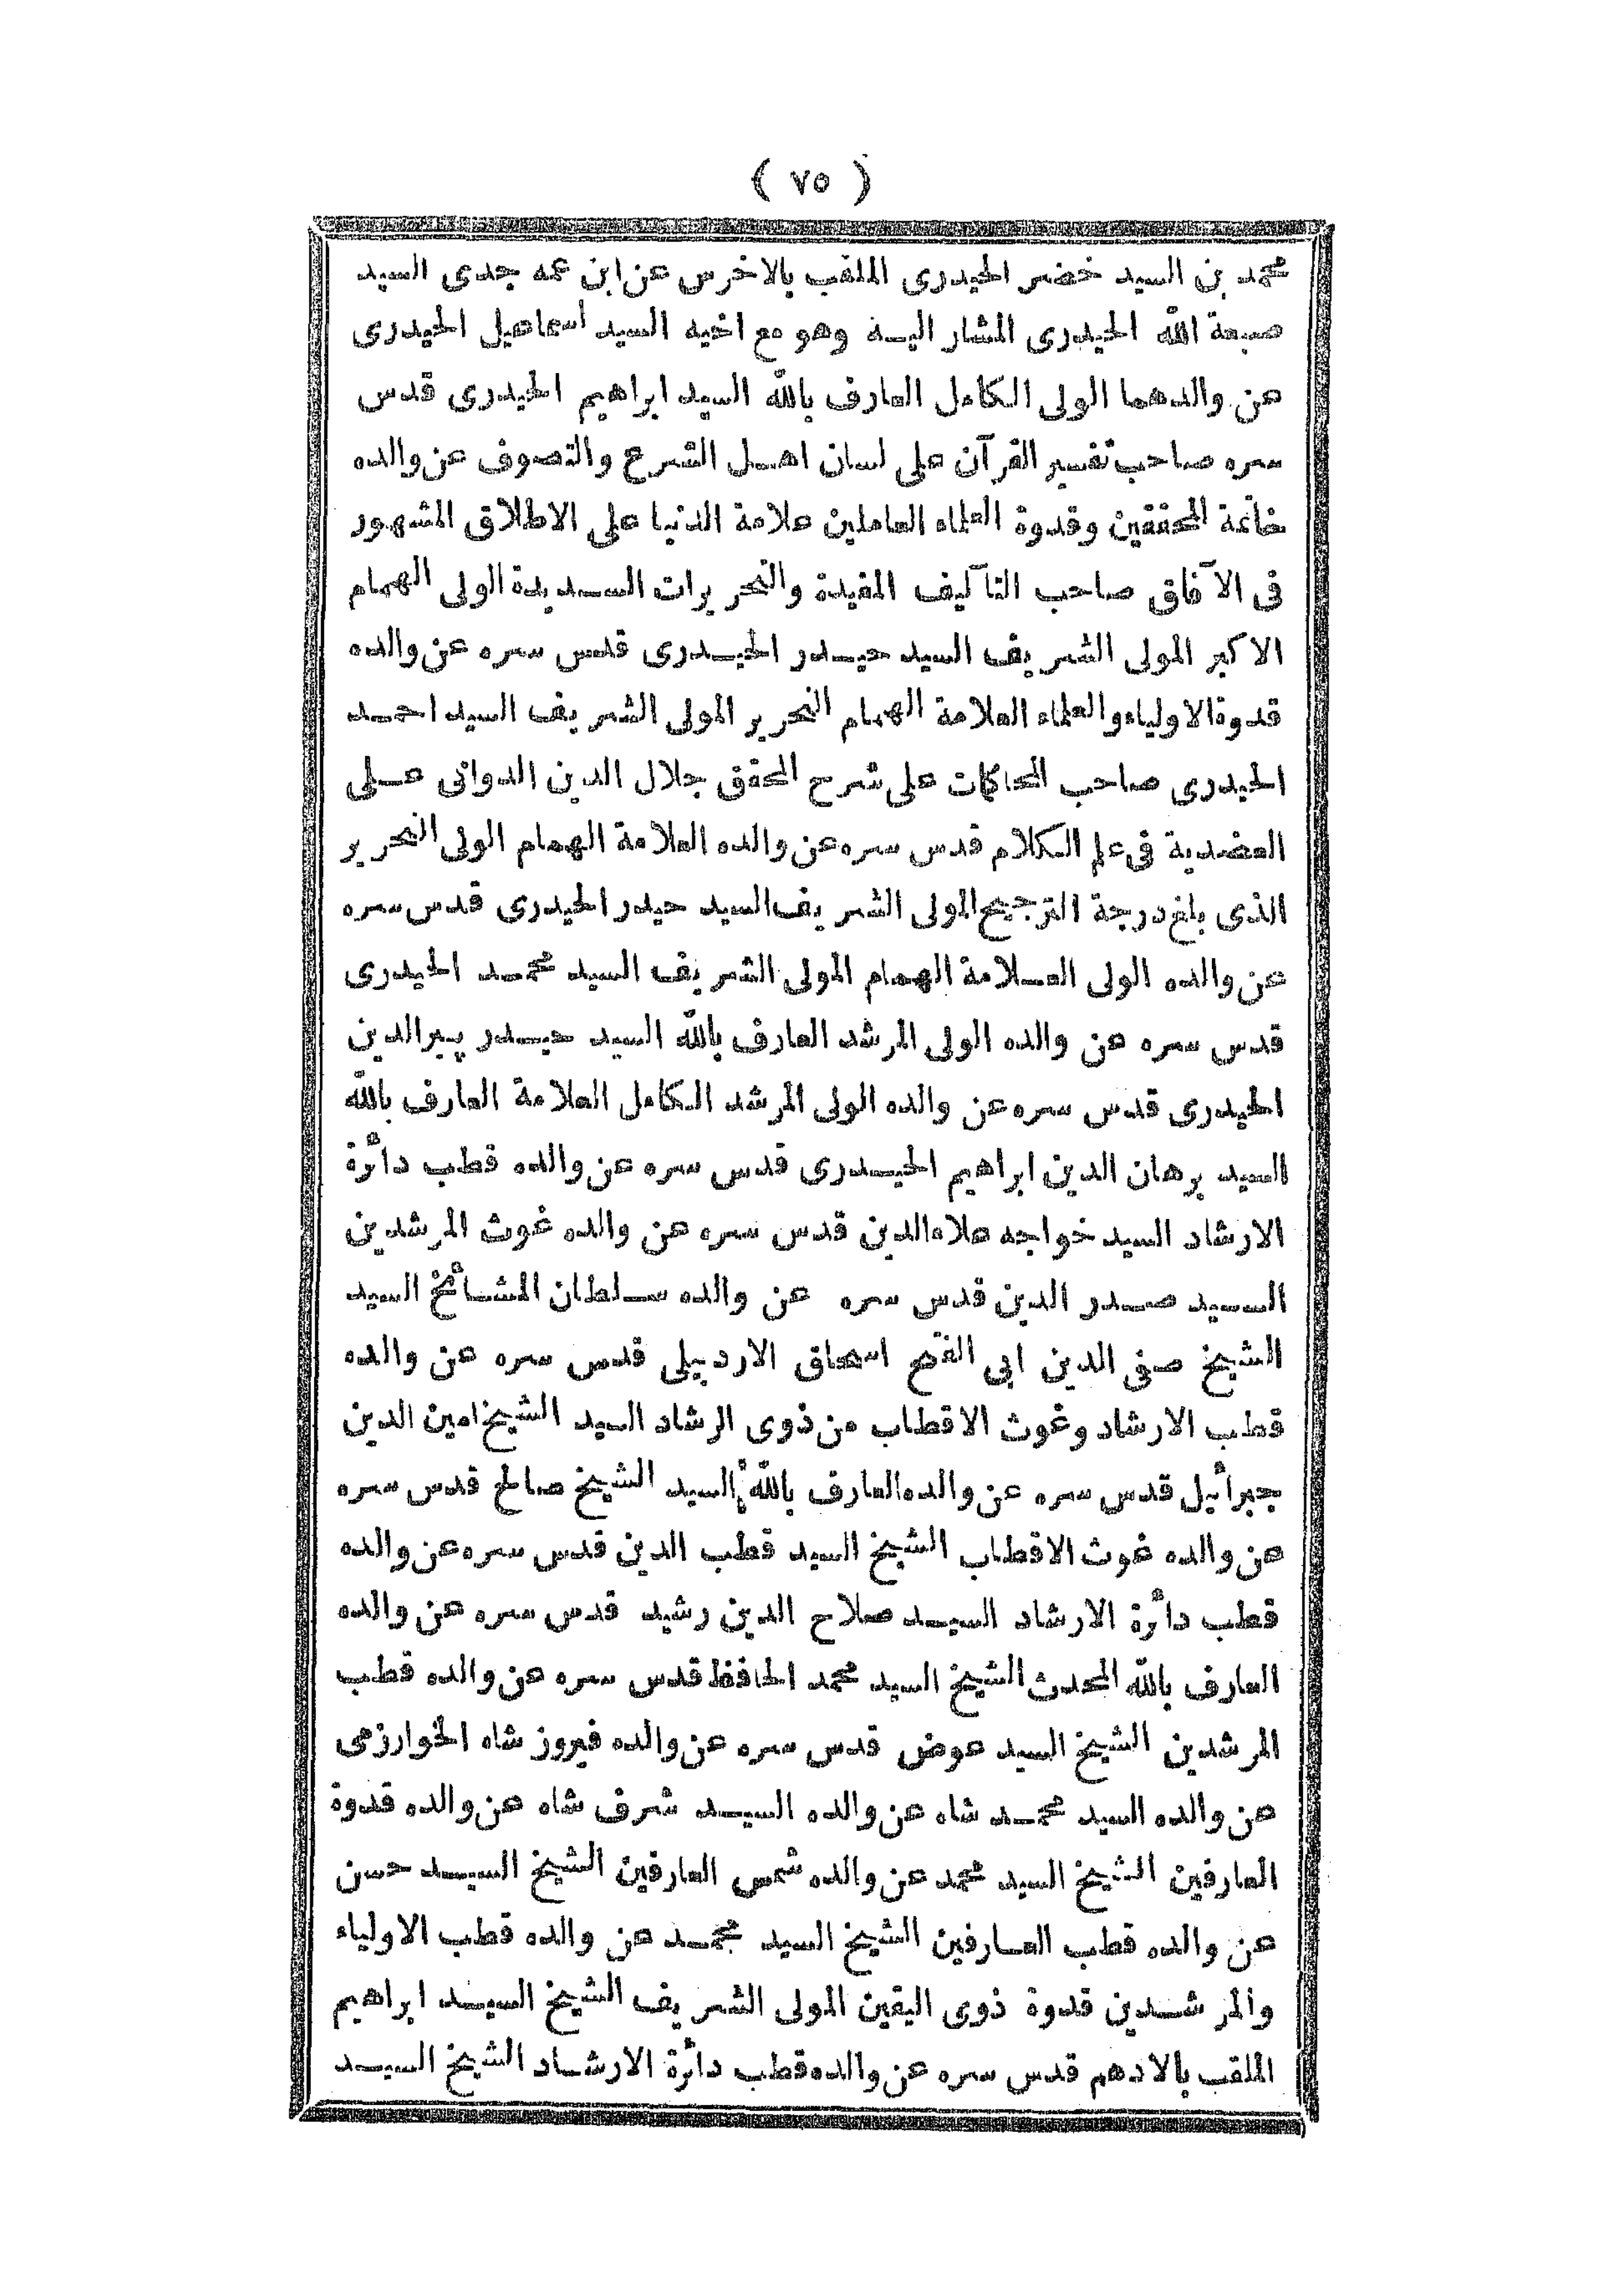 ( ٧٥ )
محمد بن السيد خضر الحيدرى الملقب بالاخرس عن ابن عمه جدى السيد
صبعة الله الحيدرى المشار اليه وهو مع اخيه السيد أسماعيل الحيدرى
عن والدهما الولى الكامل العارف بالله السيد ابراهيم الحيدرى قدس
سره صاحب تفسير القرآن على لسان اهل الشرع والتصوف عن والده
خاتمة المحققين وقدوة العلماء العاملين علامة الدنيا على الاطلاق المشهور
فى الآفاق صاحب التآليف المفيدة والتحريرات السديدة الولى الهمام
الاكبر المولى الشريف السيد حيدر الحيدرى قدس سره عن والده
قدوة الاولياء والعلماء العلامة الهمام النحرير المولى الشريف السيد احمد
الحيدرى صاحب المحاكمات على شرح المحقق جلال الدين الدوانى على
العضدية فى علم الكلام قدس سره عن والده العلامة الهمام الولى النحرير
الذى بلغ درجة الترجيح المولى الشريف السيد حيدر الحيدرى قدس سره
عن والده الولى العلامة الهمام المولى الشريف السيد محمد الحيدرى
قدس سره عن والده الولى المرشد العارف بالله السيد حيدر پيرالدين
الحيدرى قدس سره عن والده الولى المرشد الكامل العلامة العارف بالله
السيد برهان الدين ابراهيم الحيدرى قدس سره عن والده قطب دائرة
الارشاد السيد خواجه علاء الدين قدس سره عن والده غوث المرشدين
السيد صدر الدين قدس سره عن والده سلطان المشائخ السيد
الشيخ صفى الدين ابى الفتح اسحاق الاردبيلى قدس سره عن والده
قطب الارشاد وغوث الاقطاب من ذوى الرشاد السيد الشيخ امين الدين
جبرائيل قدس سره عن والده العارف بالله السيد الشيخ صالح قدس سره
عن والده غوث الاقطاب الشيخ السيد قطب الدين قدس سره عن والده
قطب دائرة الارشاد السيد صلاح الدين رشيد قدس سره عن والده
العارف بالله المحدث الشيخ السيد محمد الحافظ قدس سره عن والده قطب
المرشدين الشيخ السيد عوض قدس سره عن والده فيروز شاه الخوارزمى
عن والده السيد محمد شاه عن والده السيد شرف شاه عن والده قدوة
العارفين الشيخ السيد محمد عن والده شمس العارفين الشيخ السيد حسن
عن والده قطب العارفين الشيخ السيد محمد عن والده قطب الاولياء
والمرشدين قدوة ذوى اليقين المولى الشريف الشيخ السيد ابراهيم
الملقب بالادهم قدس سره عن والده قطب دائرة الارشاد الشيخ السيد